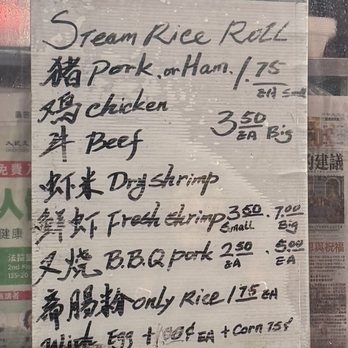 Steam Rice Roll
猪 Pork. or Ham. 1.75 EA Small
鸡 Chicken
3.50 EA Big
牛 Beef
虾米 Dry shrimp
鲜虾 Fresh shrimp 3.50 Small 7.00 Big
叉烧 B.B.Q pork 2.50 EA 5.00 EA
斋腸粉 only Rice 1.75 EA
With Egg + EA + Corn 75¢
的建議
免費
健康